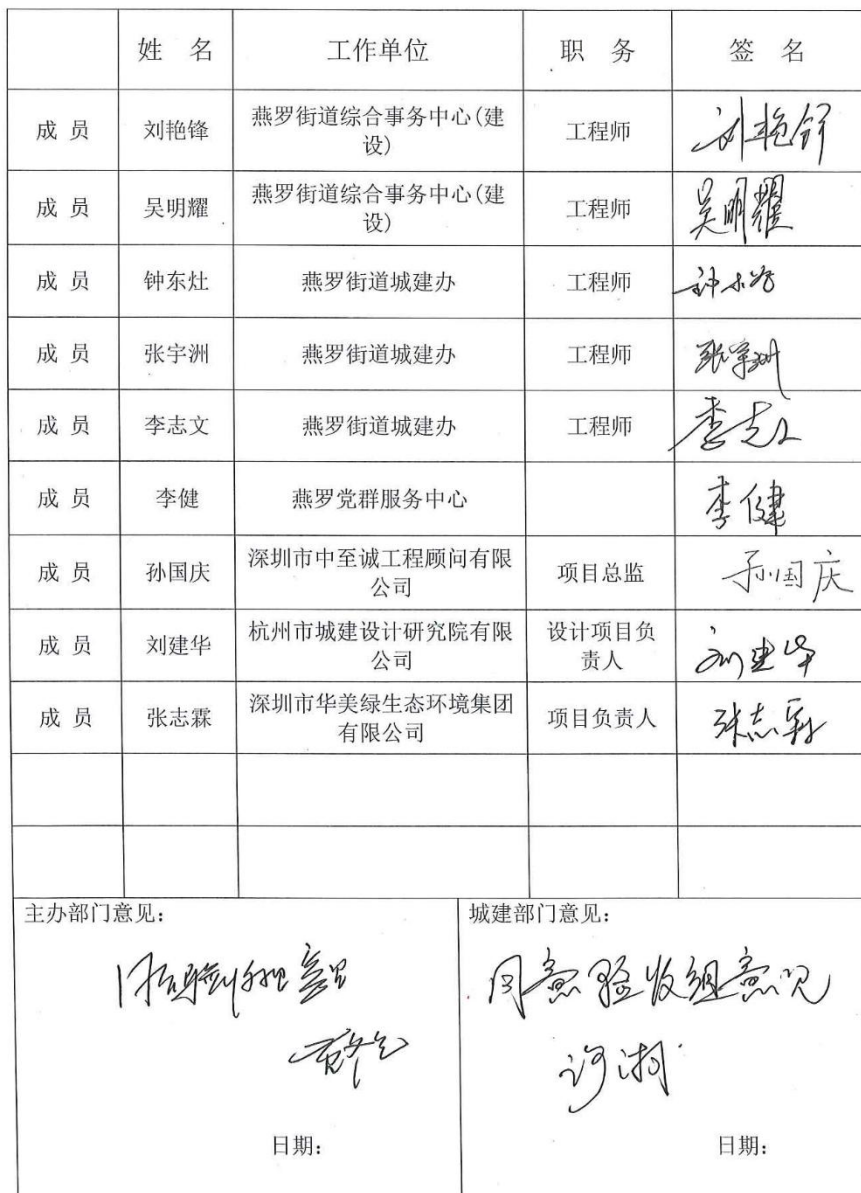 姓 名 工作单位 职 务 签 名
成 员 刘艳锋 燕罗街道综合事务中心(建 工程师 刘艳锋
设)
成 员 吴明耀 燕罗街道综合事务中心(建 工程师 吴明耀
设)
成 员 钟东灶 燕罗街道城建办 工程师
成 员 张宇洲 燕罗街道城建办 工程师 张宇洲
成 员 李志文 燕罗街道城建办 工程师 李志文
成 员 李健 燕罗党群服务中心 李健
成 员 孙国庆 深圳市中至诚工程顾问有限 项目总监 孙国庆
公司
成 员 刘建华 杭州市城建设计研究院有限 设计项目负 刘建华
公司 责人
成 员 张志霖 深圳市华美绿生态环境集团 项目负责人 张志霖
有限公司
主办部门意见: 城建部门意见:
同意验收组意见
日期: 日期: